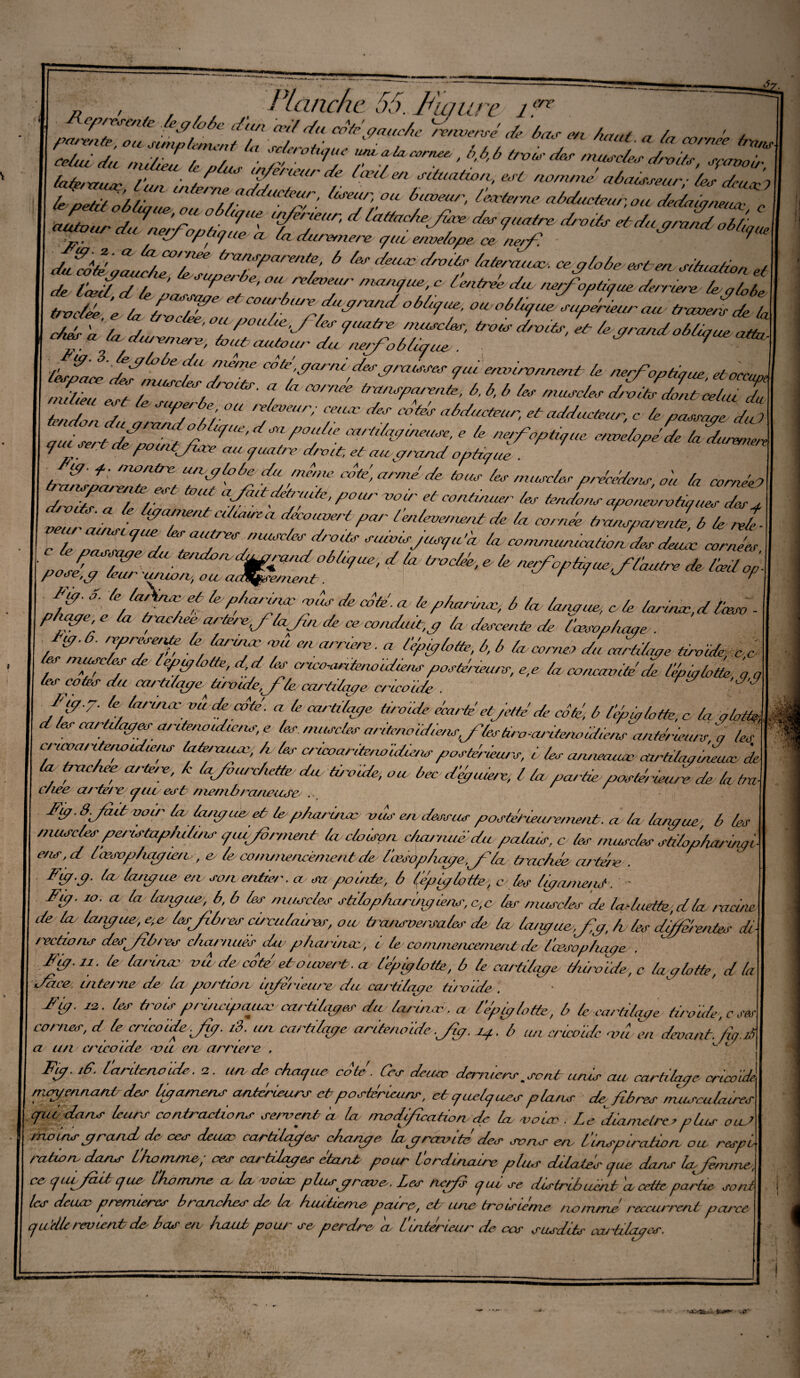 57.
Planche 55. Figure 1.ere
Représente le globe d'un œil du coté gauche renversé de bas en haut. a la cornée trans-
parente, ou simplement la sclerotique uni a la cornee, b,b,b trois des muscles droits, sçavoir,
celui du milieu le plus inférieur de l'œil en situation, est nommé abaisseur; les deux
lateraux, l'un interne adducteur, liseur, ou buveur, l'externe abducteur, ou dedaigneux, c
le petit oblique, ou oblique inférieur, d l'attache fixe des quatre droits et du grand oblique
autour du nerf optique a la duremere qui envelope ce nerf.
Fig. 2. a la cornée transparente, b les deux droits lateraux. ce globe est en situation et
du coté gauche, le superbe, ou releveur manque, c l'entrée du nerf optique derriere le globe
de l'œil, d le passage et courbure du grand oblique, ou oblique supérieur au travers de la
troclée, e la troclée, ou poulie, f les quatre muscles, trois droits, et le grand oblique atta-
chés a la duremere, tout autour du nerf oblique.
Fig. 3. le globe du même coté, garni des graisses qui environnent le nerf optique, et occupe
l'espace des muscles droits. a la cornée transparente, b, b, b les muscles droits dont celui du
milieu est le superbe, ou releveur; ceux des cotés abducteur, et adducteur, c le passage du
tendon du grand oblique, d sa poulie cartilagineuse, e le nerf optique envelopé de la duremere
qui sert de point fixe au quatre droit, et au grand optique.
Fig. 4. montre un globe du même coté, armé de tous les muscles précédens, où la cornée
transparente est tout a fait détruite, pour voir et continuer les tendons aponevrotiques des 4
droits. a le ligament ciliaire à découvert par l'enlevement de la cornée transparente, b le rele-
veur ainsi que les autres muscles droits suivis jusqu'a la communication des deux cornées,
c le passage du tendon du grand oblique, d la troclée, e le nerf optique, f l'autre de l'œil op-
posé, g leur union, ou adossement.
Fig. 5. le larinx et le pharinx vûs de coté. a le pharinx, b la langue, c le larinx, d l'œso-
phage, e la trachée artére, f la fin de ce conduit, g la descente de l'œsophage.
Fig. 6. représente le larinx vû en arriere. a l'épiglotte, b, b la corne du cartilage tiroïde, c,c
les muscles de l'épiglotte, d,d. les crico-aritenoïdiens postérieurs, e,e la concavité de l'épiglotte, g,g
les cotés du cartilage tiroïde, f le cartilage cricoïde.
Fig. 7. le larinx vû de coté. a le cartilage tiroïde écarté et jetté de coté, b l'épiglotte, c la glotte,
d les cartilages aritenoïdiens, e les muscles aritenoïdiens, f les tiro-aritenoïdiens antérieurs, g les
cricoaritenoïdiens lateraux, h les cricoaritenoïdiens postérieurs, i les anneaux cartilagineux de
la trachée artère, k la fourchette du tiroïde, ou bec d'éguiere, l la partie postérieure de la tra-
chée artère qui est membraneuse.
Fig. 8. fait voir la langue et le pharinx vûs en dessus postérieurement. a la langue, b les
muscles peristaphilins qui forment la cloison charnuë du palais, c les muscles stilopharingi-
ens, d l'œsophagien, e le commencement de l'œsophage, f la trachée artére.
Fig. 9. la langue en son entier. a sa pointe, b l'épiglotte, c les ligamens.
Fig. 10. a la langue, b, b les muscles stilopharingiens, c,c les muscles de la luette, d la racine
de la langue, e,e les fibres circulaires, ou transversales de la langue, f, g, h les différentes di-
rections des fibres charnuës du pharinx, i le commencement de l'œsophage.
Fig. 11. le larinx vû de coté et ouvert. a l'épiglotte, b le cartilage thiroïde, c la glotte, d la
face interne de la portion inférieure du cartilage tiroïde.
Fig. 12. les trois principaux cartilages du larinx. a l'épiglotte, b le cartilage tiroïde, c ses
cornes, d le cricoïde, fig. 13. un cartilage aritenoïde, fig. 14. b un cricoïde vû en devant. fig. 15
a un cricoïde vû en arriere.
Fig. 16. l'aritenoïde. 2. un de chaque coté. Ces deux derniers sont unis au cartilage cricoïde
moyennant des ligamens antérieurs et postérieurs, et quelques plans de fibres musculaires
qui dans leurs contractions servent à la modification de la voix. Le diametre plus ou
moins grand de ces deux cartilages change la gravité des sons en l'inspiration ou respi-
ration dans l'homme; ces cartilages étant pour l'ordinaire plus dilatés que dans la femme,
ce qui fait que l'homme a la voix plus grave. Les nerfs qui se distribuent à cette partie sont
les deux premieres branches de la huitieme paire, et une troisiéme nommé reccurrent parce
qu'elle revient de bas en haut pour se perdre à l'intérieur de ces susdits cartilages.